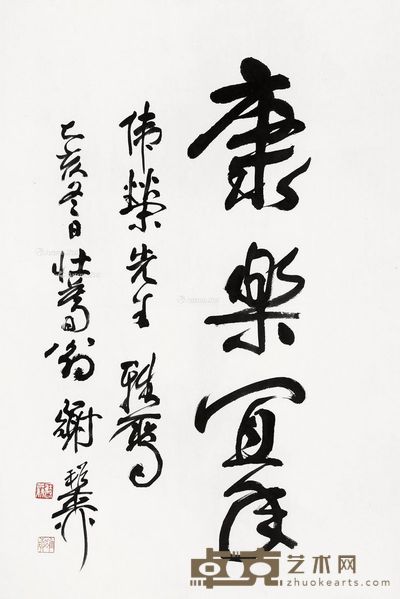 康樂宜年
偉榮先生 雅屬
乙亥冬日壮暮翁謝稚柳
卓克艺术网
zhuokearts.com